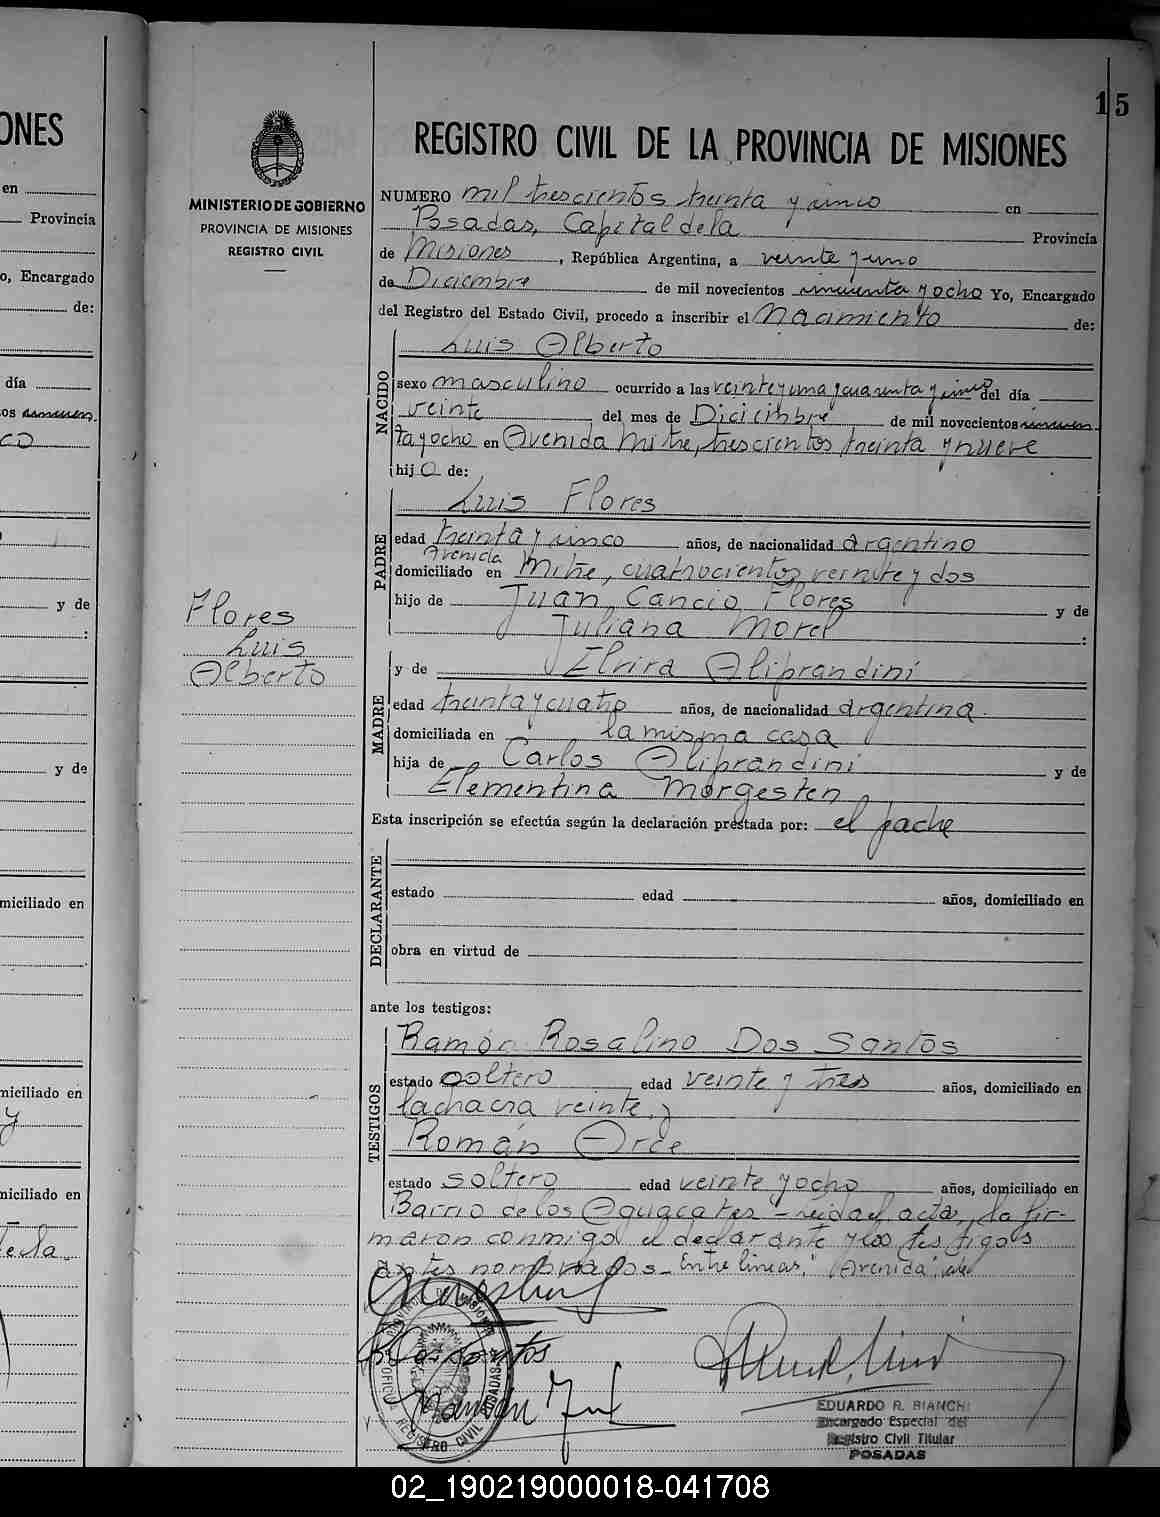 ONES
en
Provincia
o, Encargado
de:
día
os cincuen
co
y de
:
y de
miciliado en
miciliado en
y
miciliado en
15
MINISTERIO DE GOBIERNO
PROVINCIA DE MISIONES
REGISTRO CIVIL
Flores
Luis
Alberto
REGISTRO CIVIL DE LA PROVINCIA DE MISIONES
NUMERO mil trescientos treinta y cinco en
Posadas, Capital de la Provincia
de Misiones, República Argentina, a veinte y uno
de Diciembre de mil novecientos cincuenta y ocho Yo, Encargado
del Registro del Estado Civil, procedo a inscribir el Nacimiento de:
Luis Alberto
NACIDO
sexo masculino ocurrido a las veinte y una y cuarenta y cinco del día
veinte del mes de Diciembre de mil novecientos cincuen
ta y ocho en Avenida Mitre, trescientos treinta y nueve
hijo de:
Luis Flores
PADRE
edad treinta y cinco años, de nacionalidad argentino
Avenida
domiciliado en Mitre, cuatrocientos veinte y dos
hijo de Juan Cancio Flores y de
Juliana Morel :
y de Elvira Aliprandini
MADRE
edad treinta y cuatro años, de nacionalidad argentina.
domiciliada en la misma casa
hija de Carlos Aliprandini y de
Elementina Morgesten
Esta inscripción se efectúa según la declaración prestada por: el padre
DECLARANTE
estado edad años, domiciliado en
obra en virtud de
ante los testigos:
Ramón Rosalino Dos Santos
TESTIGOS
estado soltero edad veinte y tres años, domiciliado en
la chacra veinte y
Román Arce
estado soltero edad veinte y ocho años, domiciliado en
Barrio de los Aguacates - leida el acta, la fir-
maron conmigo el declarante y los testigos
antes nombrados - Entre lineas: "Avenida", vale
EDUARDO R. BIANCHI
Encargado Especial del
Registro Civil Titular
POSADAS
02_190219000018-041708